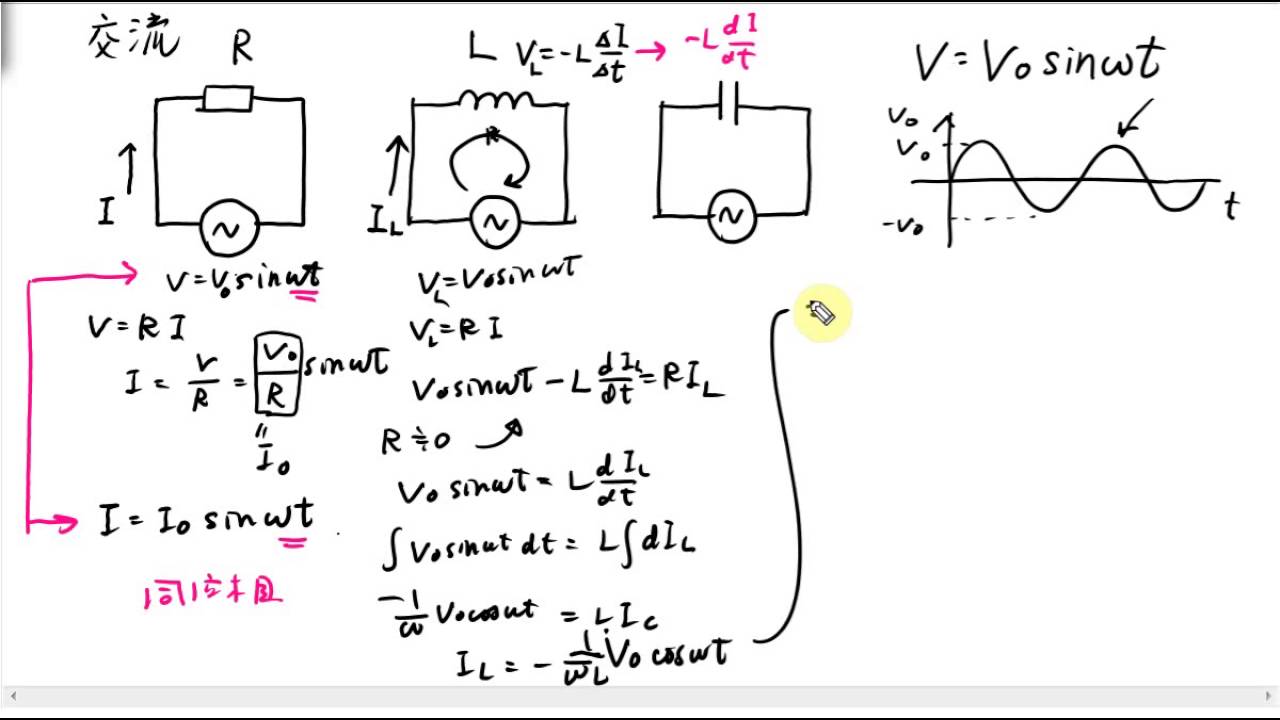 交流
R
I
V=V₀sinωt
V=RI
I = V/R = V₀/R sinωt
〃
I₀
I = I₀ sinωt
同位相
L V_L=-L ΔI/Δt → -L dI/dt
R
I_L
V_L=V₀sinωt
V_L=RI
V₀sinωt - L dI_L/dt = RI_L
R≒0
V₀ sinωt = L dI_L/dt
∫V₀sinωt dt = L∫dI_L
-1/ω V₀cosωt = LI_C
I_L = - 1/ωL V₀ cosωt
V=V₀sinωt
V₀
V₀
-V₀
t